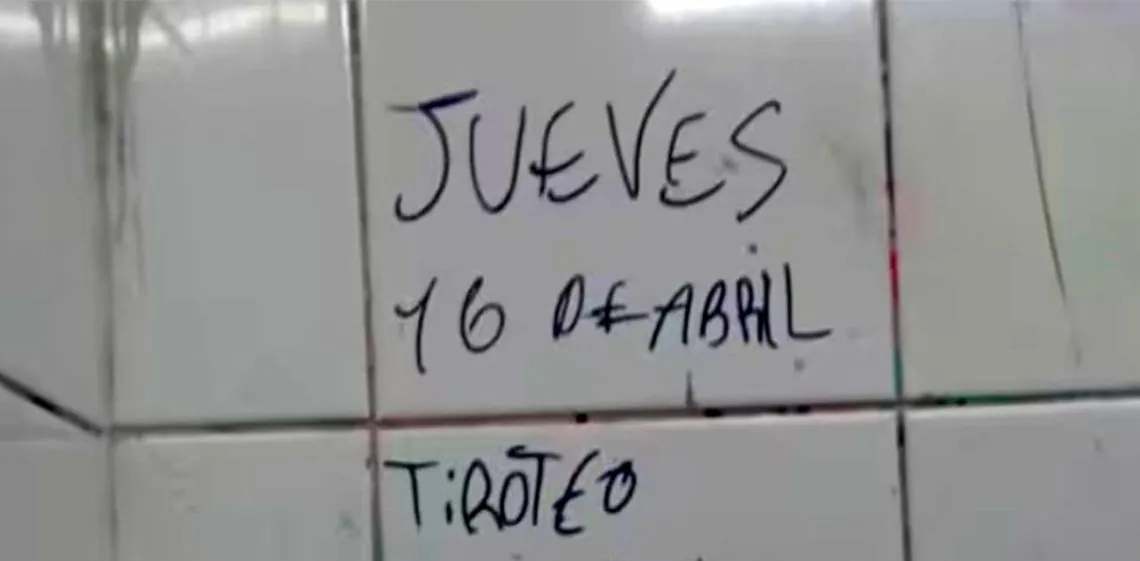 JUEVES
16 DE ABRIL
TiROTEO